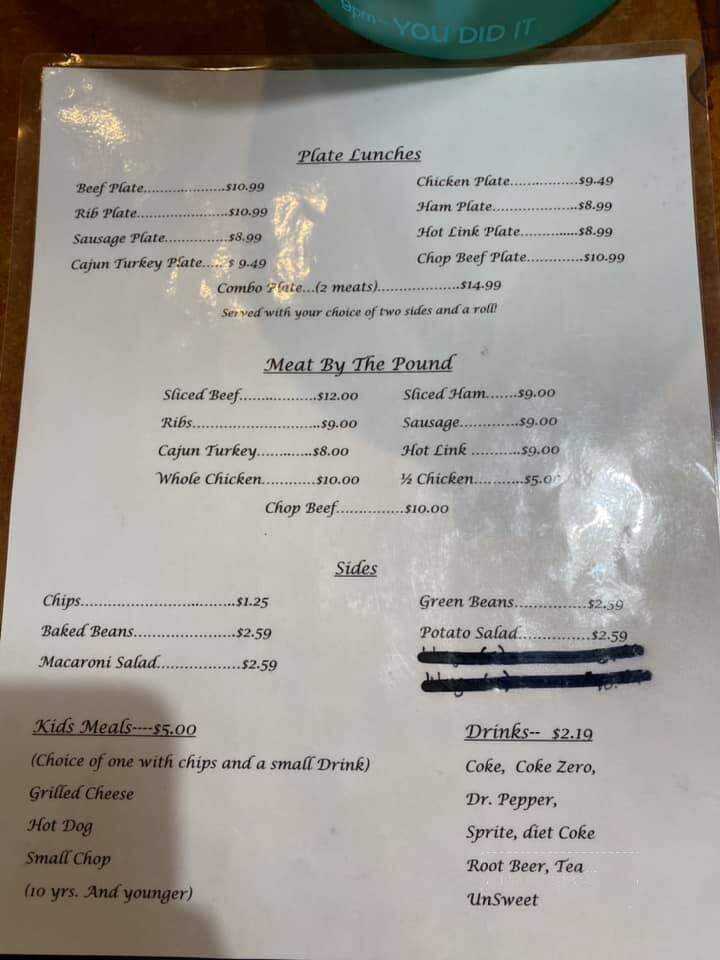 9pm- YOU DID IT
Plate Lunches
Beef Plate.....................$10.99
Chicken Plate..................$9.49
Rib Plate.......................$10.99
Ham Plate......................$8.99
Sausage Plate................$8.99
Hot Link Plate...............$8.99
Cajun Turkey Plate..... $ 9.49
Chop Beef Plate.............$10.99
Combo Plate...(2 meats)......................$14.99
Served with your choice of two sides and a roll!
Meat By The Pound
Sliced Beef...................$12.00
Sliced Ham.......$9.00
Ribs.............................$9.00
Sausage.............$9.00
Cajun Turkey.............$8.00
Hot Link ...........$9.00
Whole Chicken............$10.00
½ Chicken...........$5.0
Chop Beef................$10.00
Sides
Chips....................................$1.25
Green Beans................$2.59
Baked Beans.......................$2.59
Potato Salad................$2.59
Macaroni Salad...................$2.59
Kids Meals----$5.00
(Choice of one with chips and a small Drink)
Grilled Cheese
Hot Dog
Small Chop
(10 yrs. And younger)
Drinks-- $2.19
Coke, Coke Zero,
Dr. Pepper,
Sprite, diet Coke
Root Beer, Tea
UnSweet